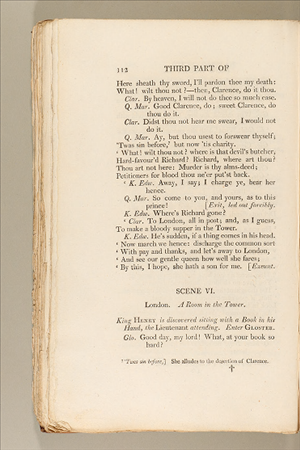 312 THIRD PART OF
Here sheath thy sword, I'll pardon thee my death:
What! wilt thou not?—then, Clarence, do it thou.
Clar. By heaven, I will not do thee so much ease.
Q. Mar. Good Clarence, do; sweet Clarence, do
thou do it.
Clar. Didst thou not hear me swear, I would not
do it.
Q. Mar. Ay, but thou usest to forswear thyself;
'Twas sin before,¹ but now 'tis charity.
‘ What! wilt thou not? where is that devil's butcher,
Hard-favour'd Richard? Richard, where art thou?
Thou art not here: Murder is thy alms-deed;
Petitioners for blood thou ne'er put'st back.
‘ K. Edw. Away, I say; I charge ye, bear her
hence.
Q. Mar. So come to you, and yours, as to this
prince! [Exit, led out forcibly.
K. Edw. Where's Richard gone?
‘ Clar. To London, all in post; and, as I guess,
To make a bloody supper in the Tower.
K. Edw. He's sudden, if a thing comes in his head.
‘ Now march we hence: discharge the common sort
‘ With pay and thanks, and let's away to London,
‘ And see our gentle queen how well she fares;
‘ By this, I hope, she hath a son for me. [Exeunt.
SCENE VI.
London. A Room in the Tower.
King HENRY is discovered sitting with a Book in his
Hand, the Lieutenant attending. Enter GLOSTER.
Glo. Good day, my lord! What, at your book so
hard?
¹ 'Twas sin before,] She alludes to the desertion of Clarence.